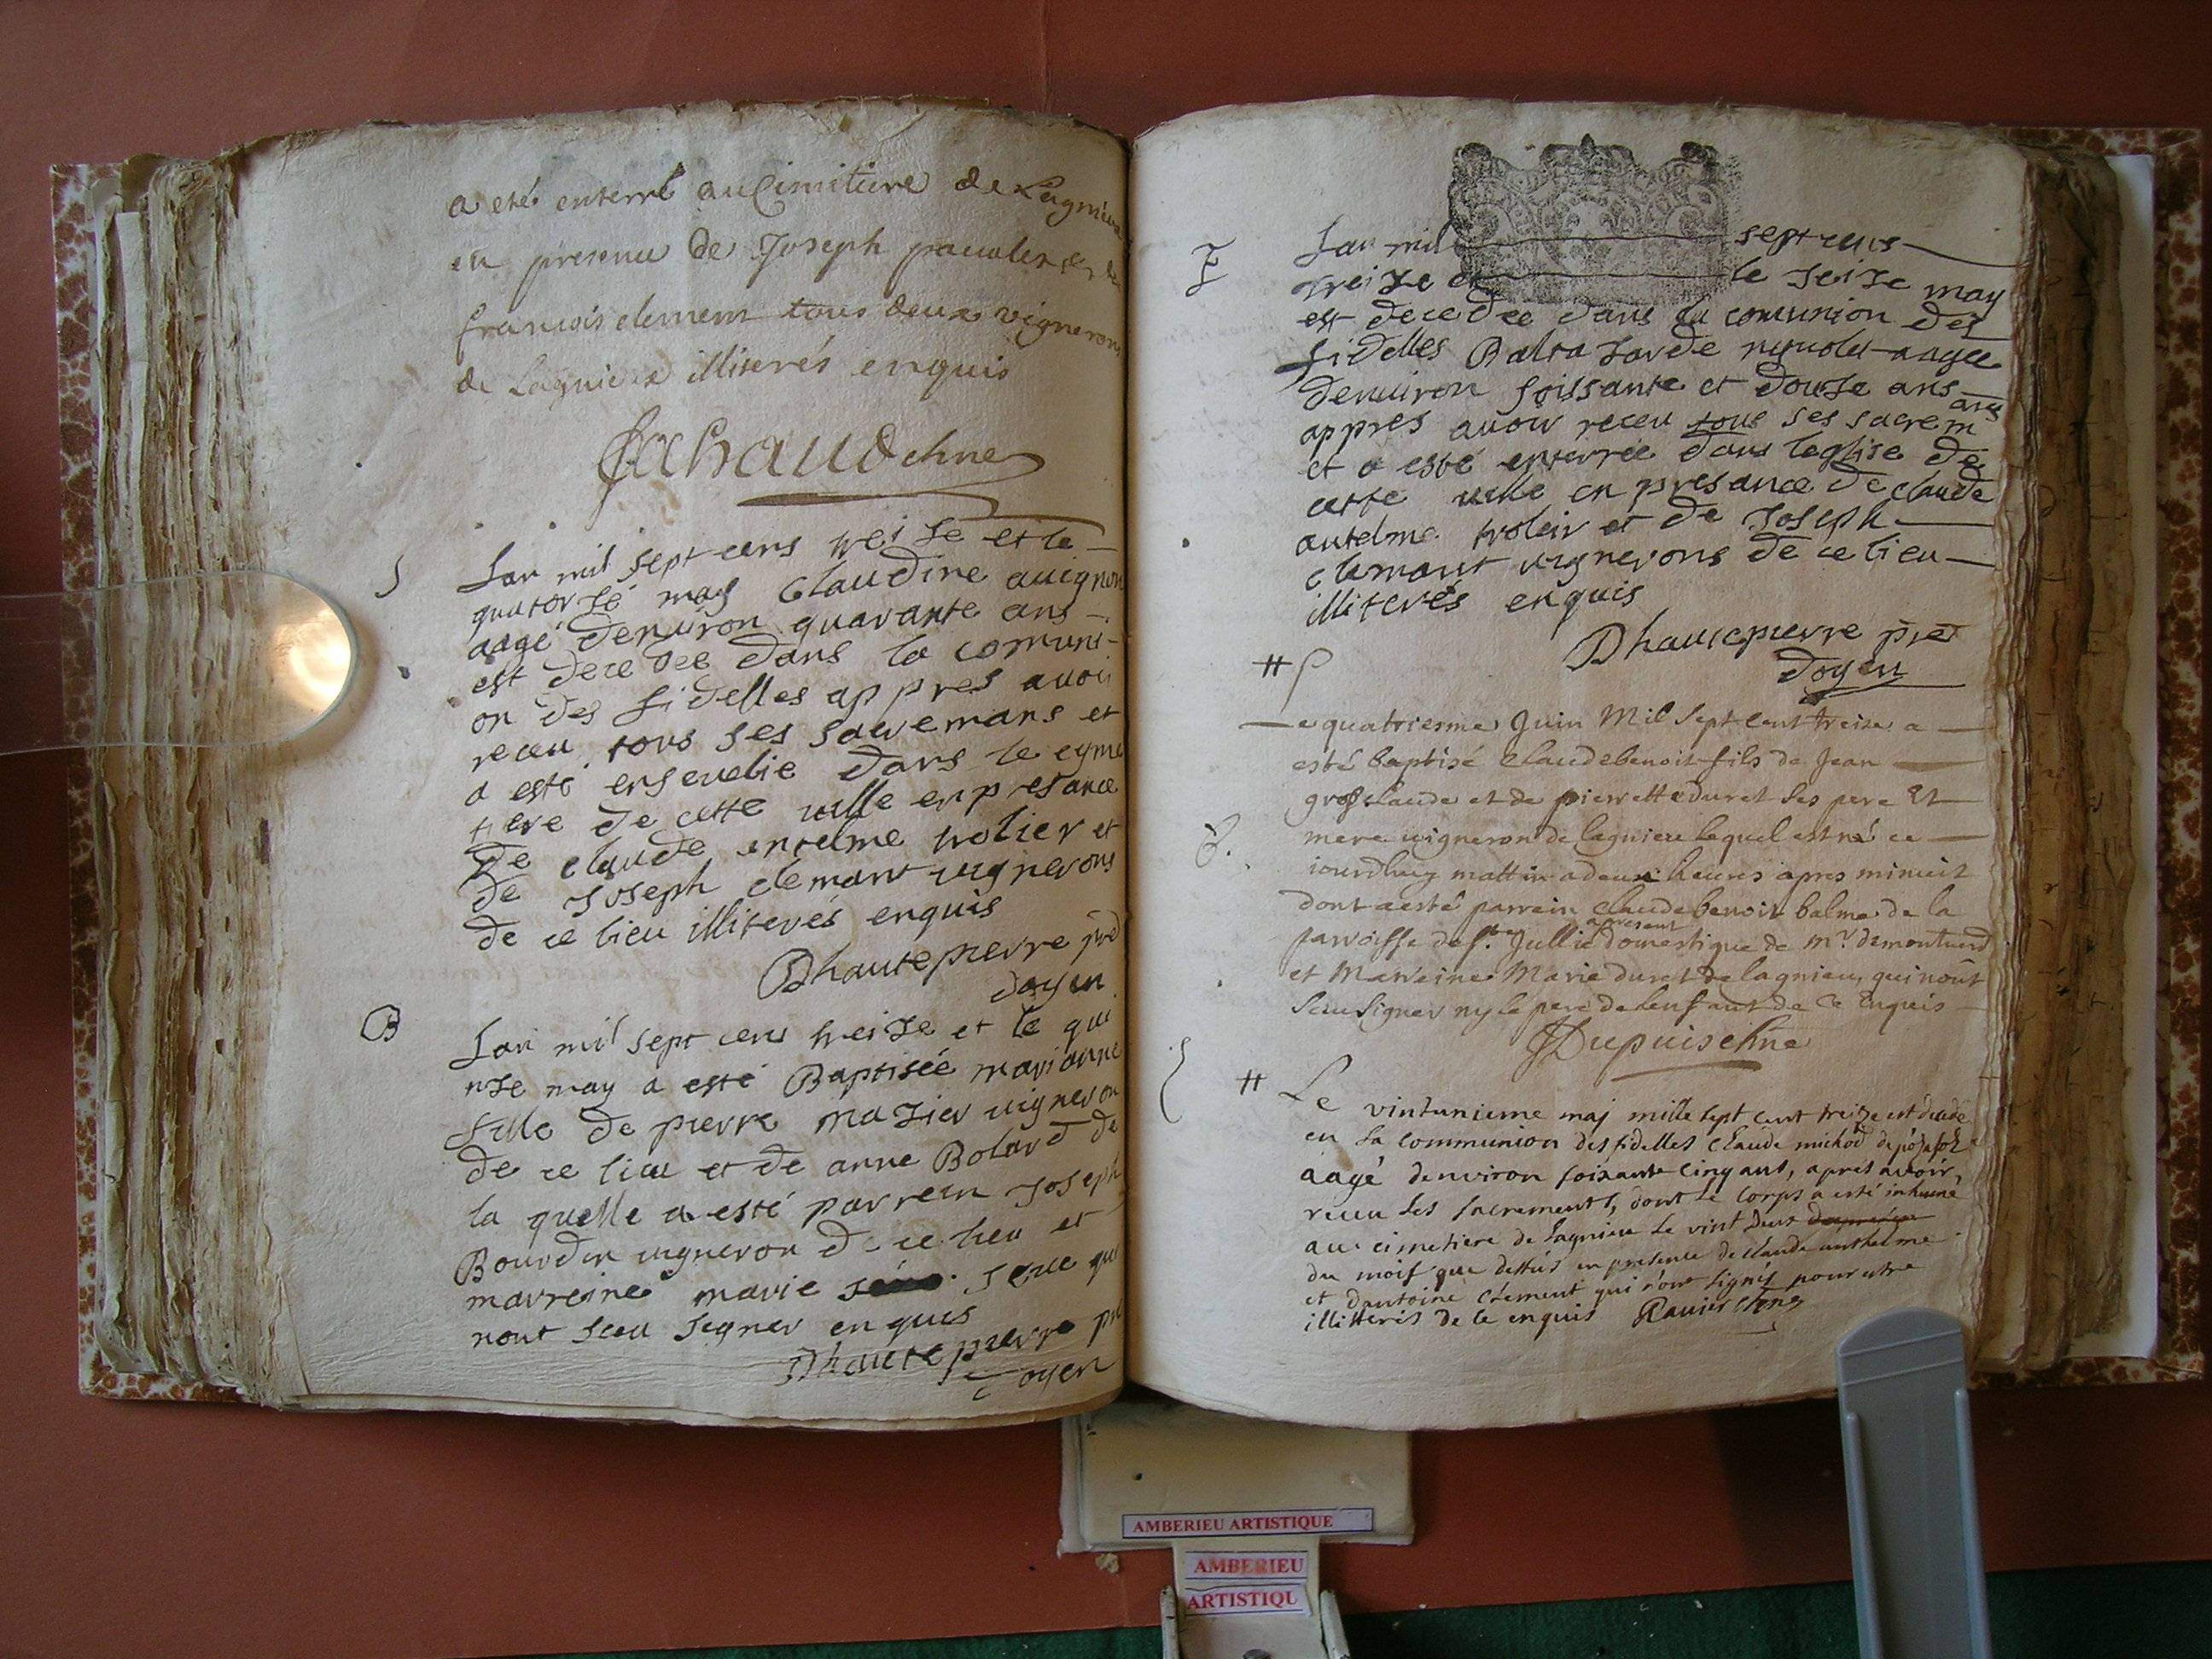 a eté enterré au Cimitiere de Lagnieu
en presence de Joseph et de
francois clement tous deux vignerons
de Lagnieu illiterés enquis
Sachaud chne
S
Lan mil sept cens treise et le
quatorse may Claudine auignon
aagé denuiron quarante ans
est decedee dans la comuni-
on des fidelles appres auoir
receu tous ses sacremans et
a esté enseuelie dans le cyme
tiere de cette ville en presance
de claude entelme trolier et
de Joseph clemant vignerons
de ce lieu illiterés enquis
Dhautepierre pre
doyen
B
Lan mil sept cens treize et le qui
nse may a esté Baptisée marianne
fille de pierre mazier vigneron
de ce lieu et de anne Bolard de
la quelle a esté parrein Joseph
Bourdin vigneron de ce lieu et
marreine marie seue qui
nont sceu signer enquis
Dhautepierre pre
doyen
Lan mil septcens
treize et le seize may
est decedee dans la comunion des
fidelles Baltazarde aagee
denuiron soissante et douse ans
appres auoir receu tous ses sacrem ans
et a esté enterrée dans leglise de
cette ville en presance de claude
antelme trolier et de Joseph
clemant vignerons de ce lieu
illiterés enquis
Dhautepierre pre
doyen
#
Le quatriesme Juin Mil sept cent treize a
esté baptisé claude benoit fils de Jean
grosclaude et de pierrette duret ses pere Et
B.
mere vigneron de lagnieu lequel est né ce
iourdhuy mattin a deux heures apres minuit
dont a esté parrein claude benoit balme de la
apresent
parroisse de ste Jullie domestique de mr. demontuert
et Marreine Marie duret de lagnieu, qui nont
sceu signer ny le pere de lenfant de ce Enquis
Dupuis chne
#
Le vintunieme maj mille sept cent treize est decede
en la communion des fidelles claude michod
aagé denviron soixante cinq ans, apres avoir,
receu les sacrements, dont le corps a esté inhumé
au cimetiere de lagnieu le vint deux
du mois que dessus en presence de claude anthelme
et dantoine clement qui nont signés pour estre
illitteris de ce enquis Ravier chne
AMBERIEU ARTISTIQUE
AMBERIEU
ARTISTIQU